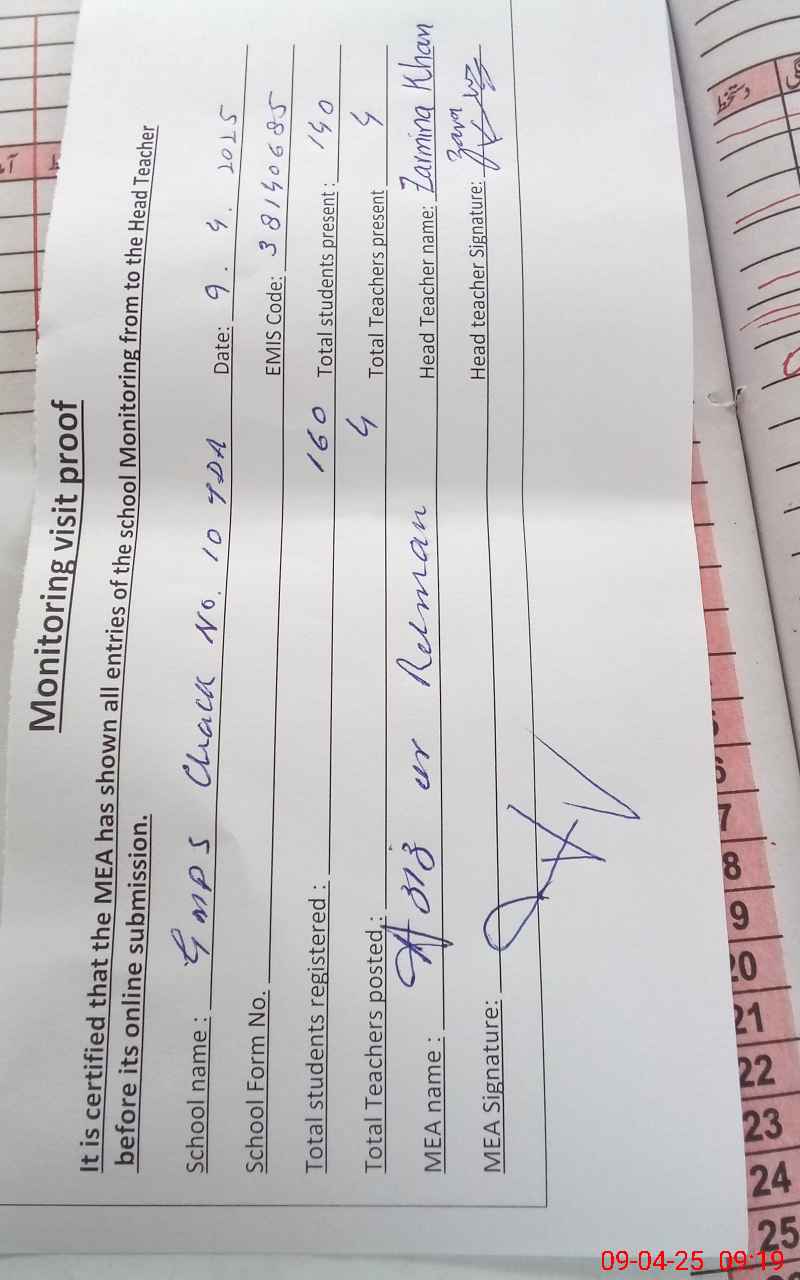 Monitoring visit proof
It is certified that the MEA has shown all entries of the school Monitoring from to the Head Teacher
before its online submission.
School name : GMPS Chack No. 10 TDA Date: 9. 4. 2025
School Form No. EMIS Code: 38140685
Total students registered : 160 Total students present : 140
Total Teachers posted : 4 Total Teachers present 4
MEA name : Aziz ur Rehman Head Teacher name: Zarmina Khan
MEA Signature: Head teacher Signature: Zara
دستخط
7
8
9
20
21
22
23
24
25
09-04-25 09:19